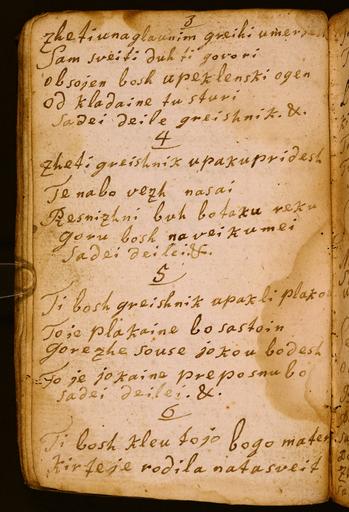 3
zheti vnaglavnim greihi umerjesh
Sam sveiti duh ti govori
obsojen bosh upeklenski ogen
od kladaine tu sturi
Sadei deile greishnik. &.
4
zheti greishnik upaku pridesh
Te nabo vezh nasai
Resnizhni buh bo taku reku
Goru bosh na veiku mei
Sadei deile i &.
5
Ti bosh greishnik upakli plakou
Toje plakaine bo sastoin
Gorezhe souse jokou bodesh
To je jokaine preposnu bo
sadei deile. &.
6
Ti bosh kleu to jo bogo mater
kir te je rodila nata sveit